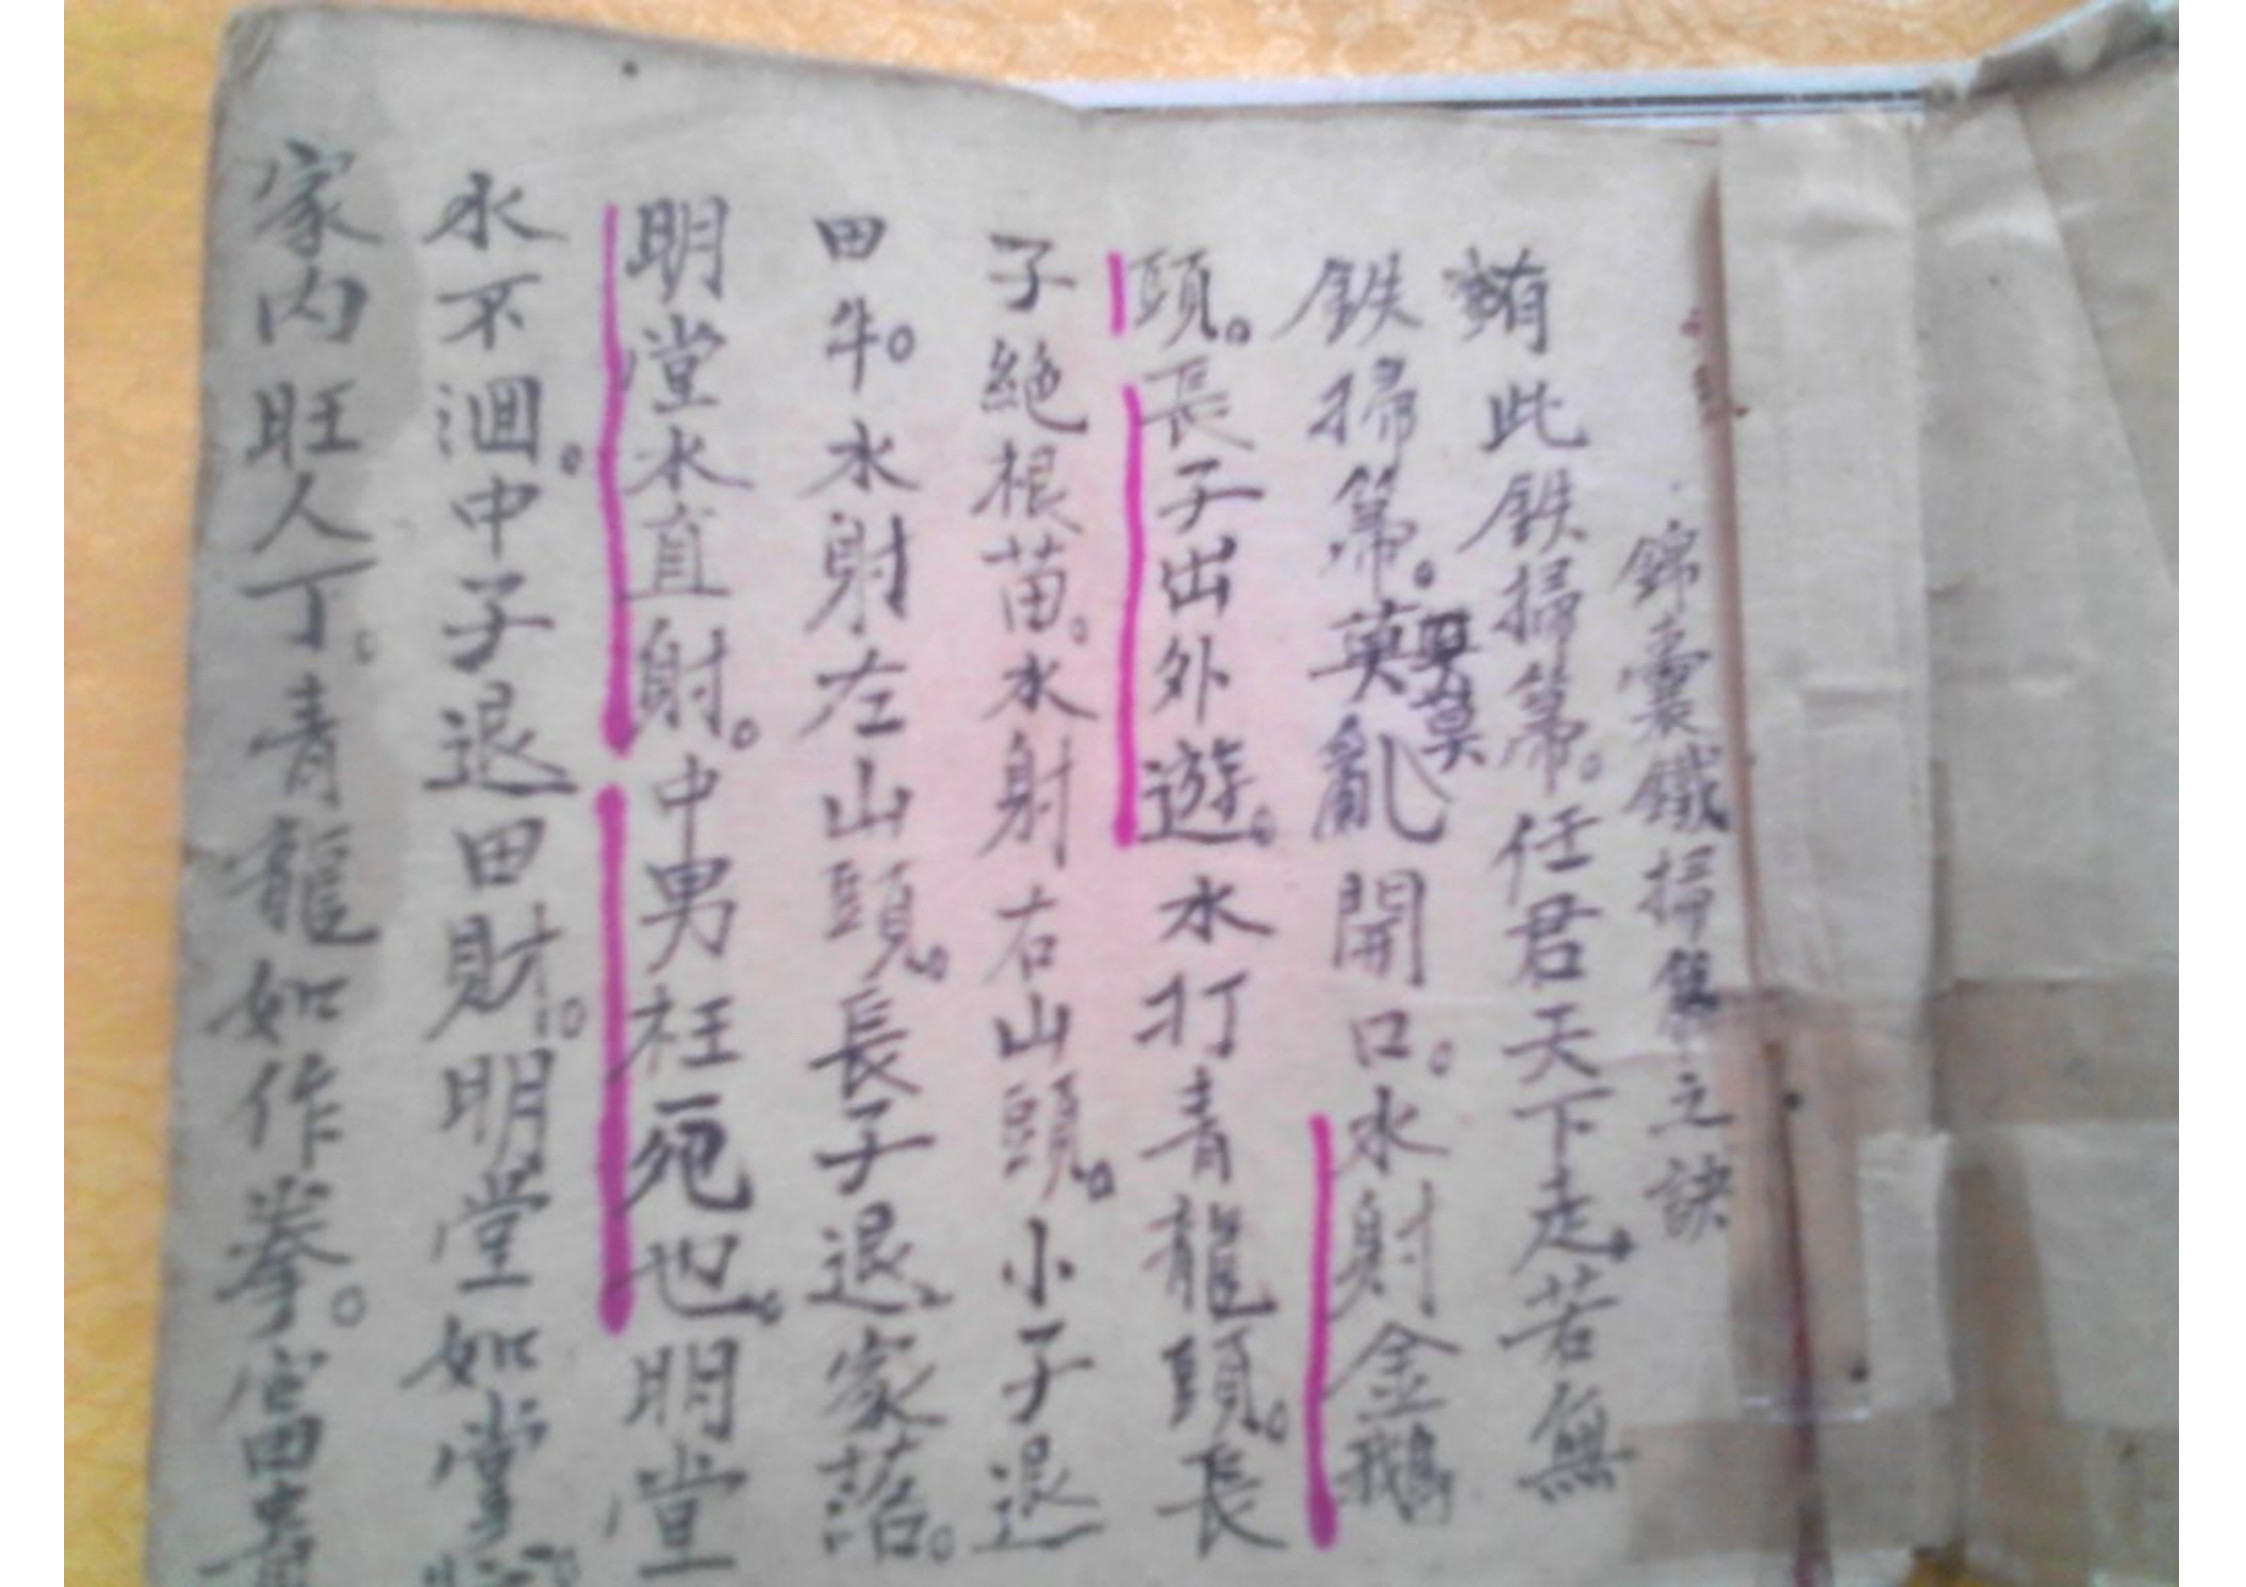 錦囊鐵掃箒之訣
有此鉄掃箒。任君天下走。若無
鉄掃箒。莫亂開口。水射金鵝
頭。長子出外遊。水打青龍頭。長
子絶根苗。水射右山頭。小子退
田牛。水射左山頭。長子退家落。
明堂水直射。中男枉死也。明堂
水不洄。中子退田財。明堂如掌
家内旺人丁。青龍如作拳。富貴